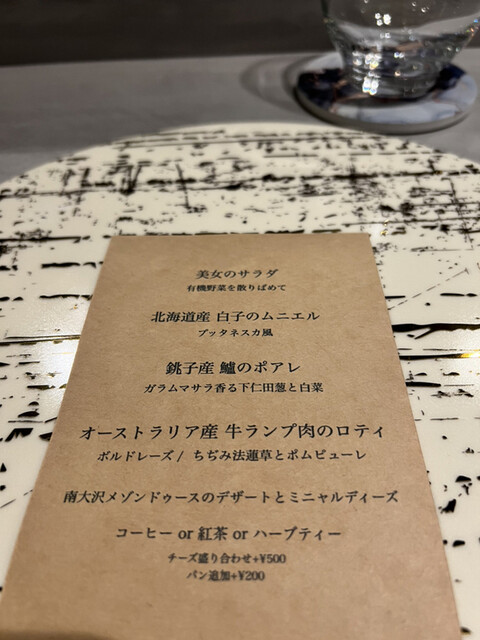 美女のサラダ
有機野菜を散りばめて
北海道産 白子のムニエル
プッタネスカ風
銚子産 鱸のポアレ
ガラムマサラ香る下仁田葱と白菜
オーストラリア産 牛ランプ肉のロティ
ボルドレーズ / ちぢみ法蓮草とポムピューレ
南大沢メゾンドゥースのデザートとミニャルディーズ
コーヒー or 紅茶 or ハーブティー
チーズ盛り合わせ+¥500
パン追加+¥200